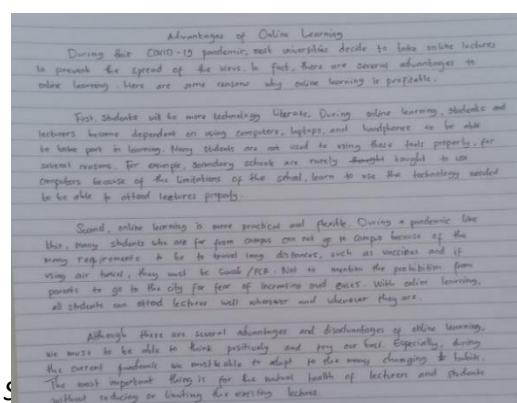 Advantages of Online Learning
During this COVID-19 pandemic, most universities decide to take online lectures
to prevent the spread of the virus. In fact, there are several advantages to
online learning. Here are some reasons why online learning is profitable.
First, students will be more technology literate. During online learning, students and
lecturers become dependent on using computers, laptops, and handphones to be able
to take part in learning. Many students are not used to using these tools properly, for
several reasons. For example, secondary schools are rarely taught to use
computers because of the limitations of the school, learn to use the technology needed
to be able to attend lectures properly.
Second, online learning is more practical and flexible. During a pandemic like
this, many students who are far from campus can not go to campus because of the
many requirements to be to travel long distances, such as vaccines and if
using air travel, they must be Swab/PCR. Not to mention the prohibition from
parents to go to the city for fear of increasing and cases. With online learning,
all students can attend lectures well wherever and whenever they are.
Although there are several advantages and disadvantages of online learning,
we must to be able to think positively and try our best. Especially, during
the current pandemic we must be able to adapt to the many changing habits.
The most important thing is for the mutual health of lecturers and students
without reducing or limiting the existing lectures.